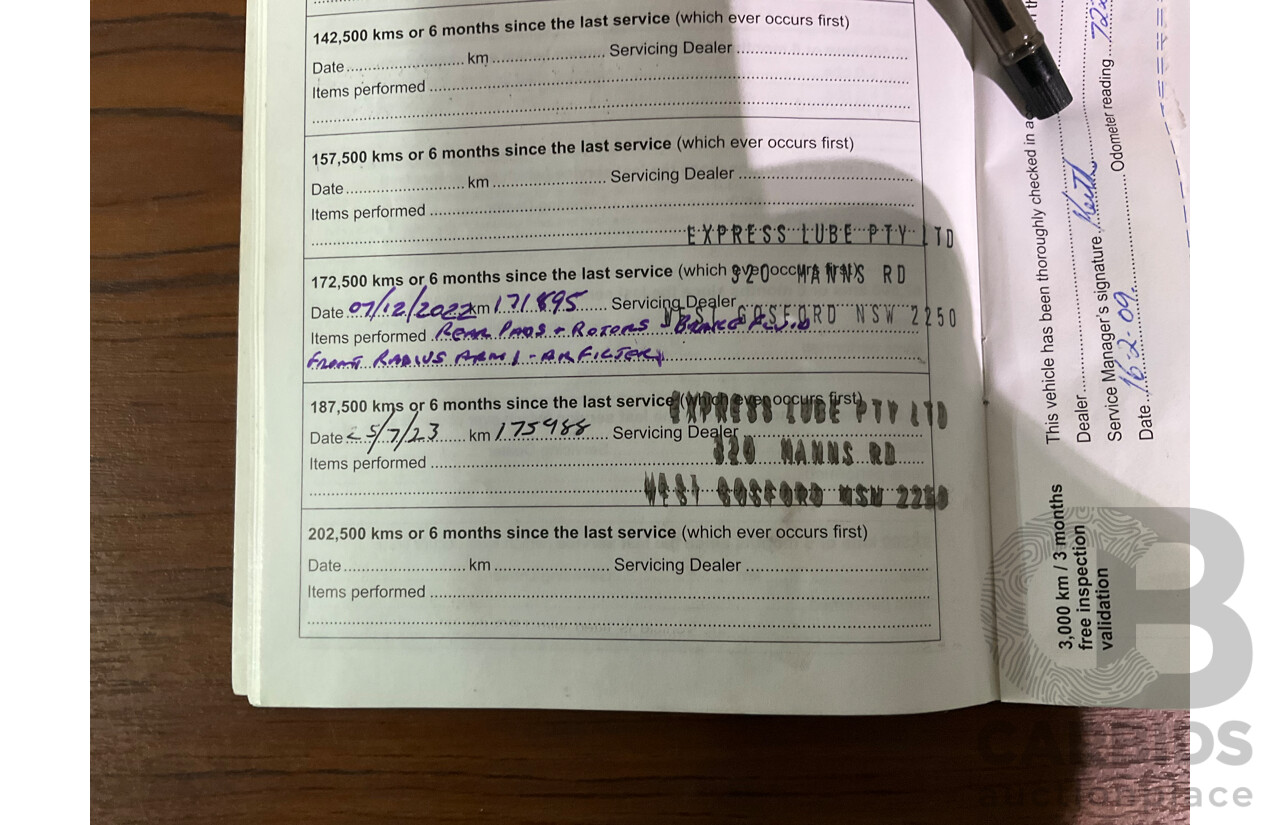 142,500 kms or 6 months since the last service (which ever occurs first)
Date.......................... km.......................... Servicing Dealer ..........................
Items performed ..........................
157,500 kms or 6 months since the last service (which ever occurs first)
Date.......................... km.......................... Servicing Dealer ..........................
Items performed ..........................
EXPRESS LUBE PTY LTD
172,500 kms or 6 months since the last service (which ever occurs first)
320 MANNS RD
Date 07/12/2022 km 171895 Servicing Dealer
WEST GOSFORD NSW 2250
Items performed REAR PADS + ROTORS - BRAKE FLUID
FRONT RADIUS ARM - AIR FILTER
187,500 kms or 6 months since the last service (which ever occurs first)
EXPRESS LUBE PTY LTD
Date 25/7/23 km 175988 Servicing Dealer
320 MANNS RD
Items performed ..........................
WEST GOSFORD NSW 2250
202,500 kms or 6 months since the last service (which ever occurs first)
Date.......................... km.......................... Servicing Dealer ..........................
Items performed ..........................
3,000 km / 3 months
free inspection
validation
This vehicle has been thoroughly checked in
Dealer Keith
Service Manager's signature Odometer reading
Date 16-2-09
CARBIDS
auctionplace